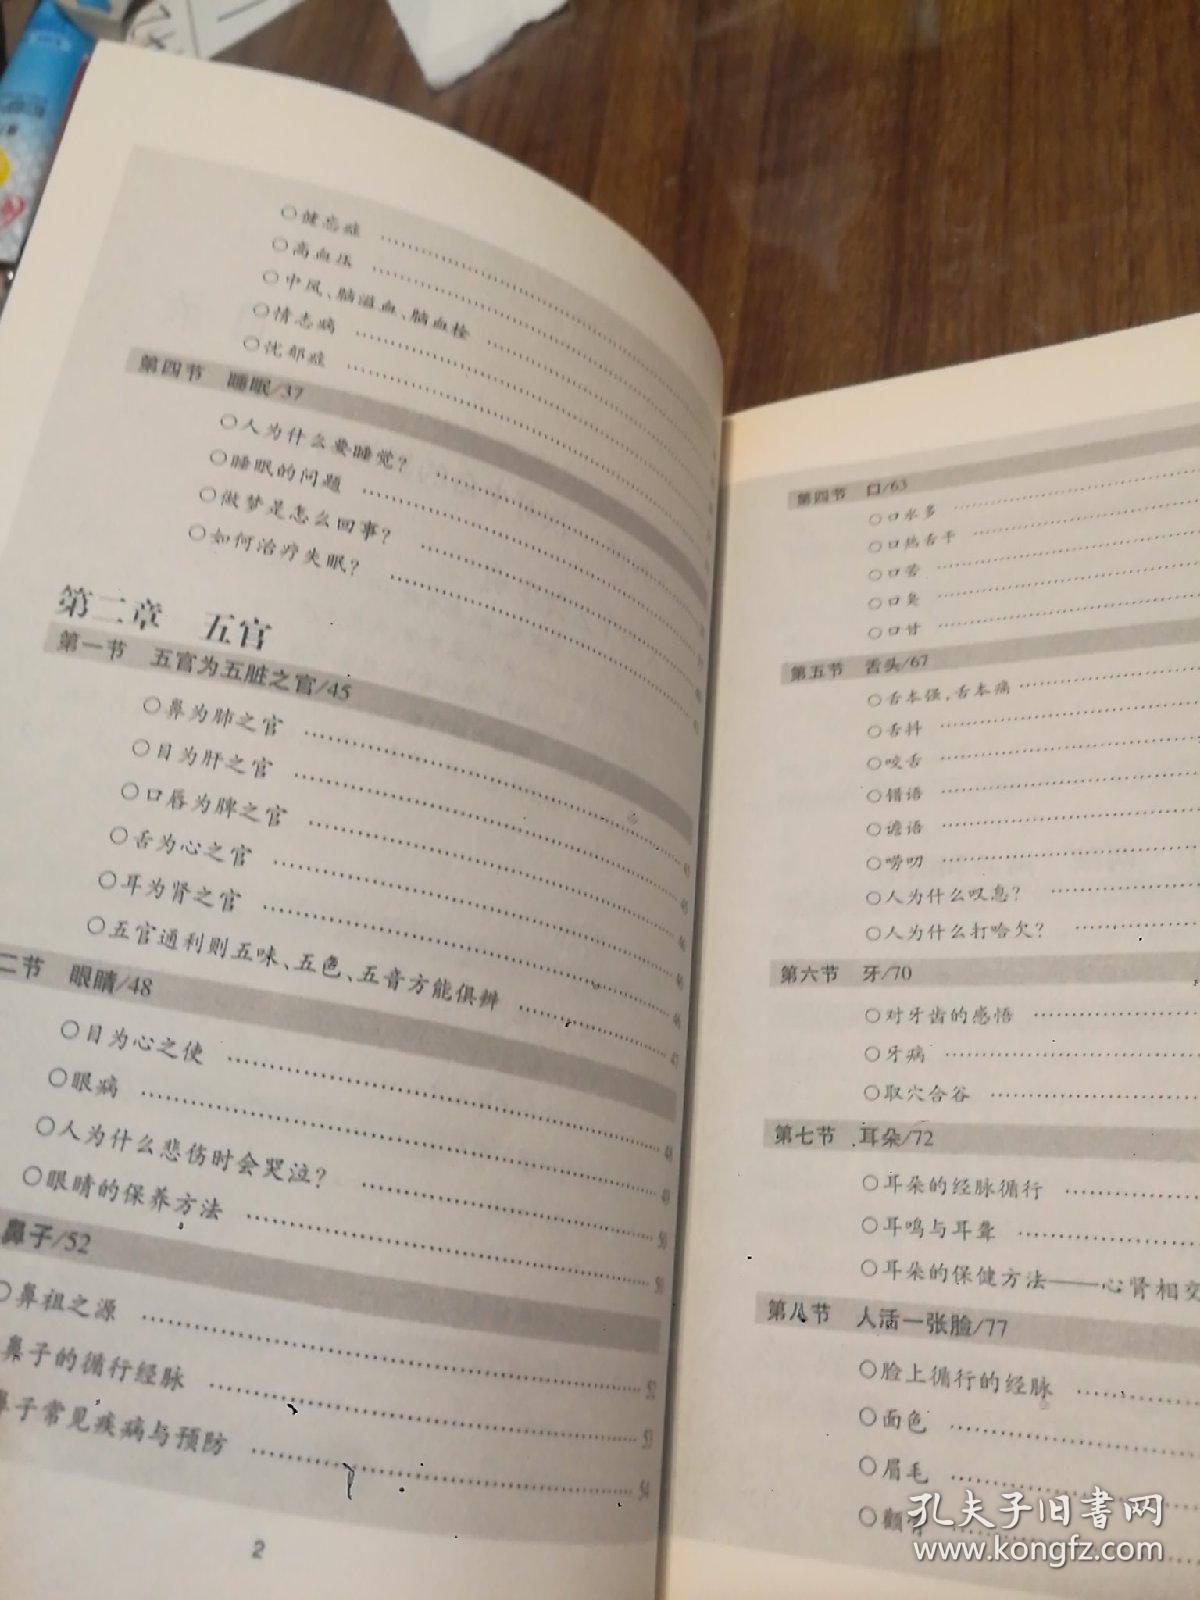 ○健忘症
○高血压
○中风、脑溢血、脑血栓
○情志病
○忧郁症
第四节 睡眠/37
○人为什么要睡觉？
○睡眠的问题
○做梦是怎么回事？
○如何治疗失眠？
第二章 五官
第一节 五官为五脏之官/45
○鼻为肺之官
○目为肝之官
○口唇为脾之官 45
○舌为心之官 45
○耳为肾之官 46
○五官通利则五味、五色、五音方能俱辨 47
二节 眼睛/48
○目为心之使 48
○眼病 49
○人为什么悲伤时会哭泣？ 50
○眼睛的保养方法 50
鼻子/52
○鼻祖之源 52
鼻子的循行经脉 53
鼻子常见疾病与预防 54
2
第四节 口/63
○口水多
○口热舌干
○口苦
○口臭
○口甘
第五节 舌头/67
○舌本强，舌本痛
○舌抖
○咬舌
○错语
○谵语
○唠叨
○人为什么叹息？
○人为什么打哈欠？
第六节 牙/70
○对牙齿的感悟
○牙病
○取穴合谷
第七节 耳朵/72
○耳朵的经脉循行
○耳鸣与耳聋
○耳朵的保健方法——心肾相交
第八节 人活一张脸/77
○脸上循行的经脉
○面色
○眉毛
○颧骨
孔夫子旧书网
www.kongfz.com